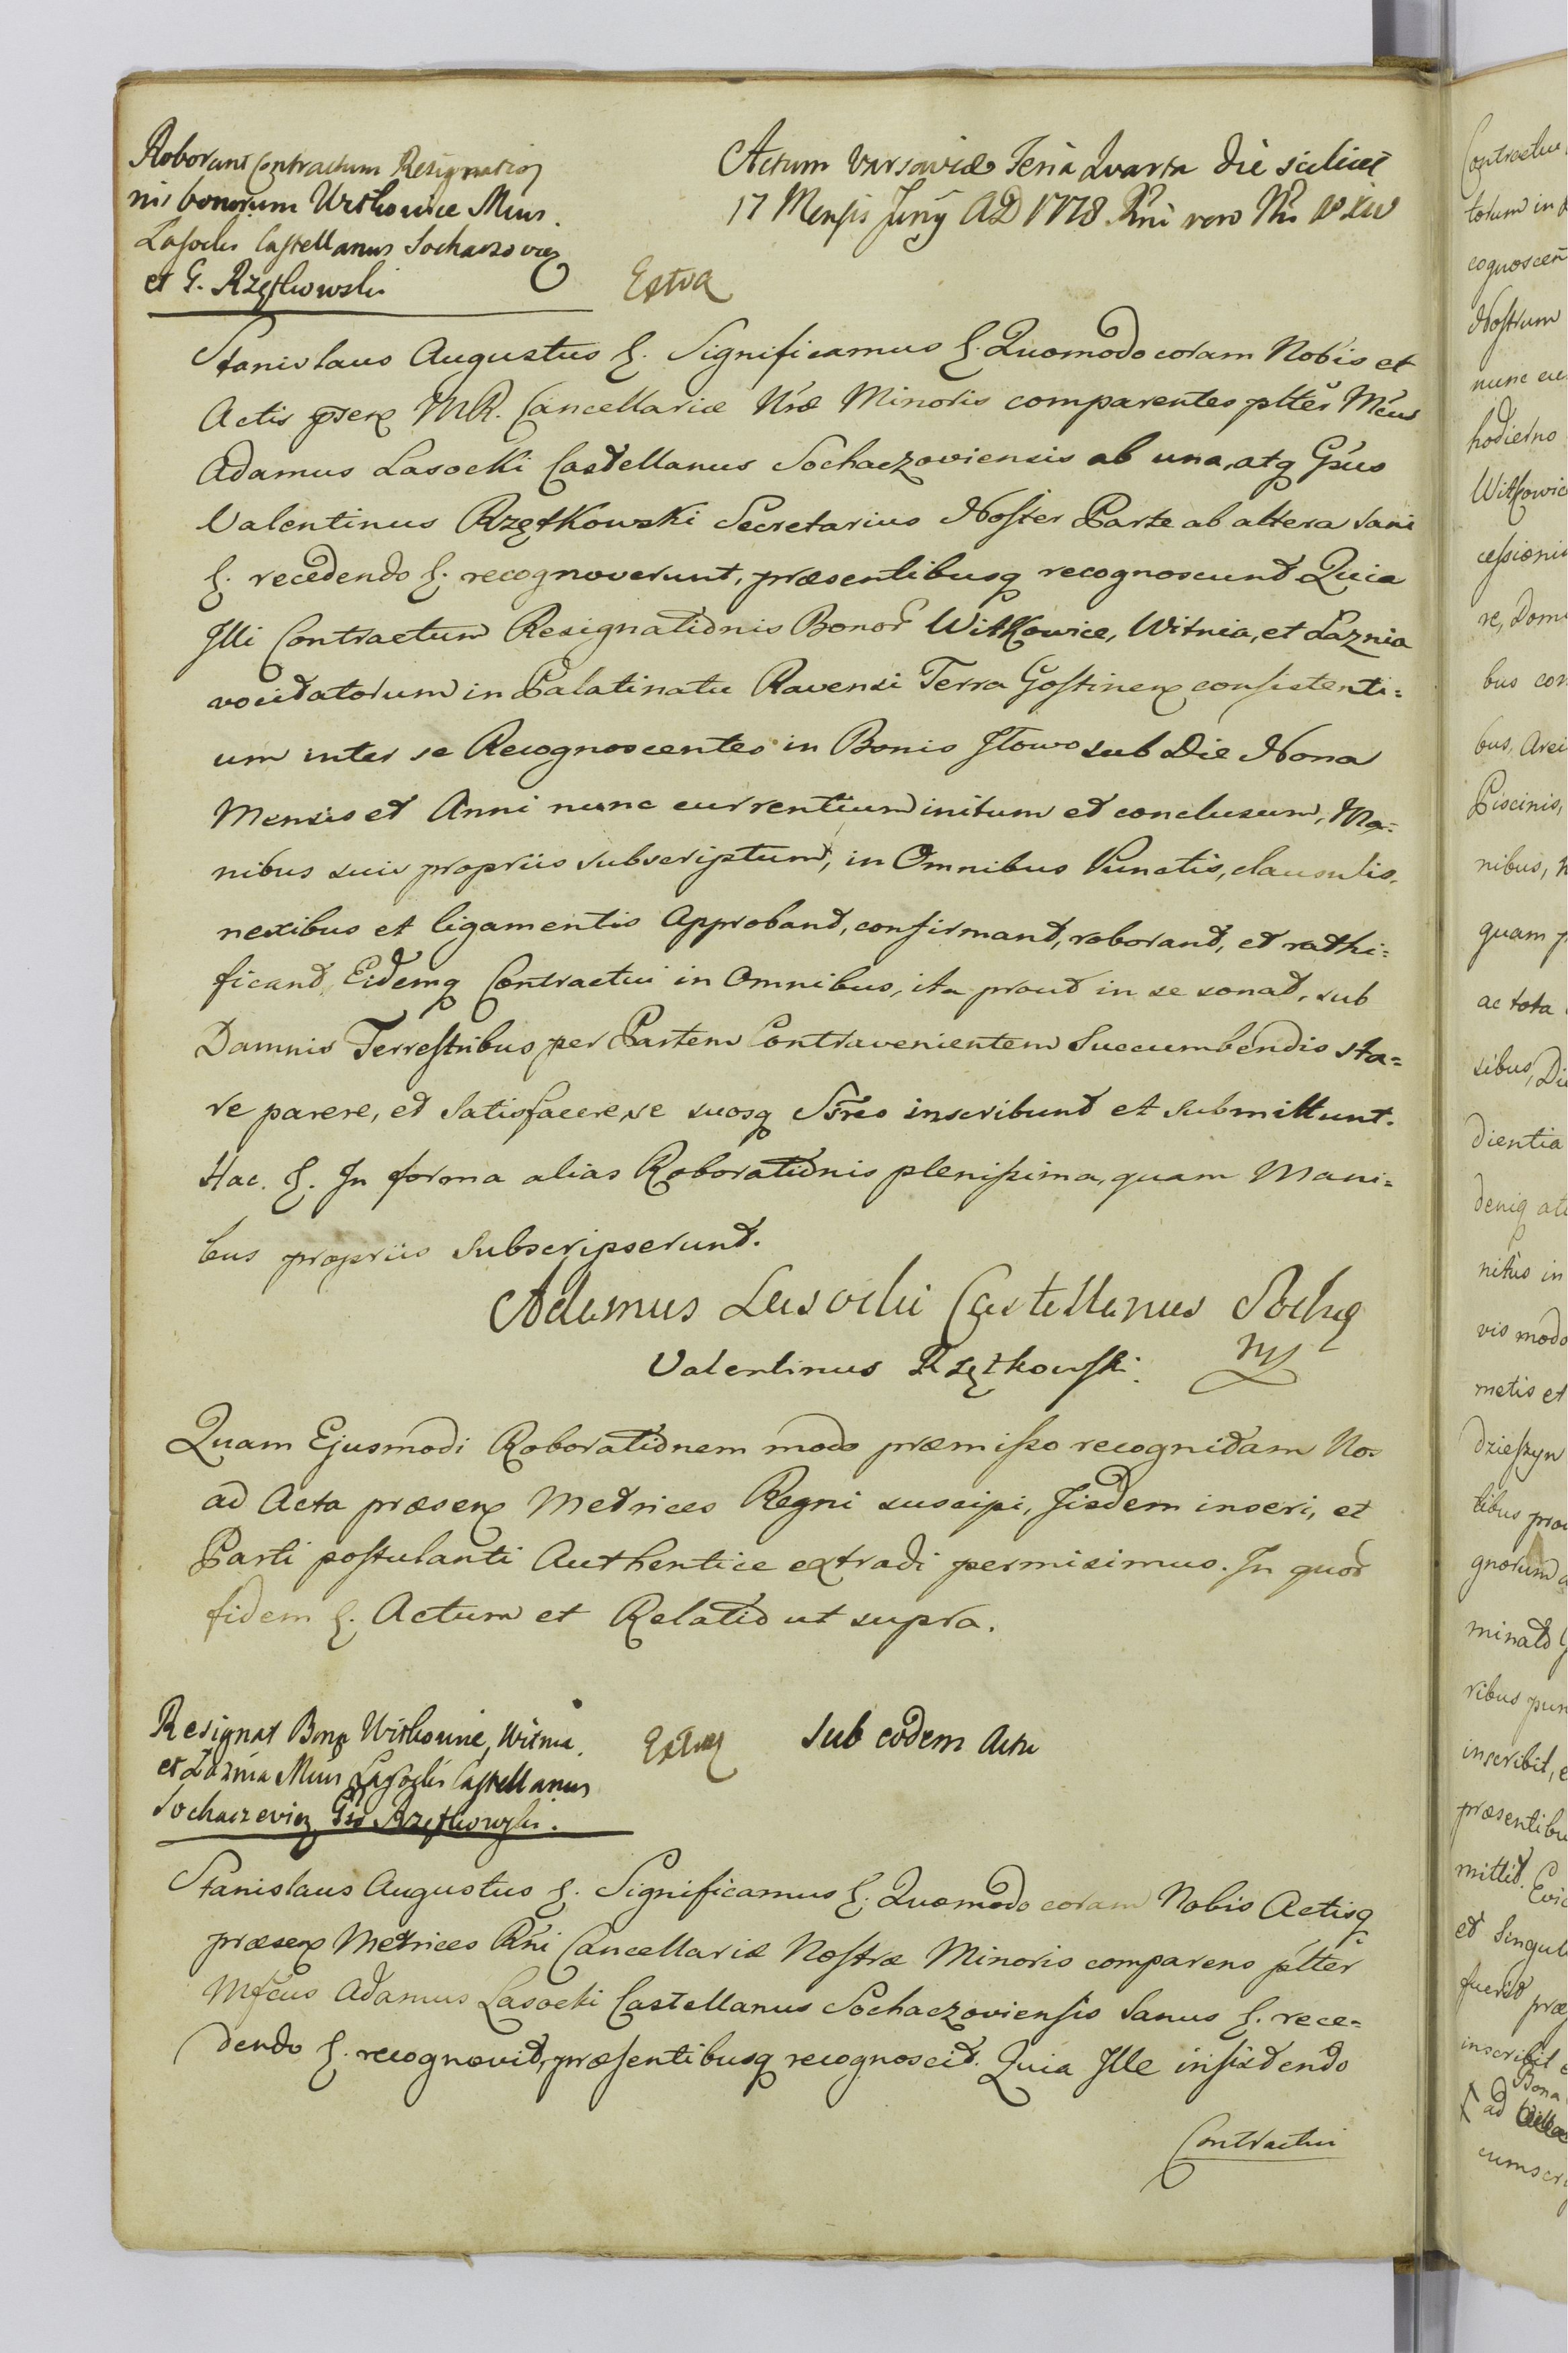 Roborant Contractum Resignatio
nis bonorum Witkowice Mcus
Lasocki Castellanus Sochaczovien
et G. Rzętkowski
Actum Varsaviæ Feria Quarta Die scilicet
17 Mensis Junÿ AD 1778. Rni vero Nri
Extra
Stanislaus Augustus &. Significamus &. Quomodo coram Nobis et
Actis præsen MR. Cancellariæ Nræ Minoris comparentes plter Mcus
Adamus Lasocki Castellanus Sochaczoviensis ab una, atq Gsus
Valentinus Rzętkowski Secretarius Noster Parte ab altera sani
&. recedendo &. recognoverunt, præsentibusq recognoscunt Quia
Illi Contractum Resignationis Bonor Witkowice, Witnia, et Łaznia
vocitatorum in Palatinatu Ravensi Terra Gostinen consistenti=
um inter se Recognoscentes in Bonis Iłowo sub Die Nona
Mensis et Anni nunc currentium initum et conclusum, Ma=
nibus suis propriis subscriptum, in Omnibus Punctis, clausulis,
nexibus et ligamentis Approbant, confirmant, roborant, et rathi=
ficant, Eidemq Contractui in Omnibus, ita prout in se sonat, sub
Damnis Terrestribus per Partem Contravenientem Succumbendis sta=
re parere, et Satisfacere, se suosq Ssres inscribunt et submittunt.
Hac. &. In forma alias Roborationis plenissima, quam Mani=
bus propriis Subscripserunt.
Adamus Lasocki Castellanus Socha
Valentinus Rzętkowski.
Quam Ejusmodi Roborationem modo præmisso recognitam Nos
ad Acta præsen Metrices Regni suscipi, Iisdem inseri, et
Parti postulanti Authentice extradi permisimus. In quor
fidem &. Actum et Relatio ut supra.
Resignat Bona Witkowice, Witnia,
et Łaznia Mcus Lasocki Castellanus
Sochaczevien Gso Rzętkowski.
Extra
Sub eodem Actu
Stanislaus Augustus &. Significamus &. Quomodo coram Nobis Actisq
præsen Metrices Rni Cancellariæ Nostræ Minoris comparens plter
Mfcus Adamus Lasocki Castellanus Sochaczoviensis Sanus &. rece=
dendo &. recognovit, præsentibusq recognoscit. Quia Ille insistendo
Contractui